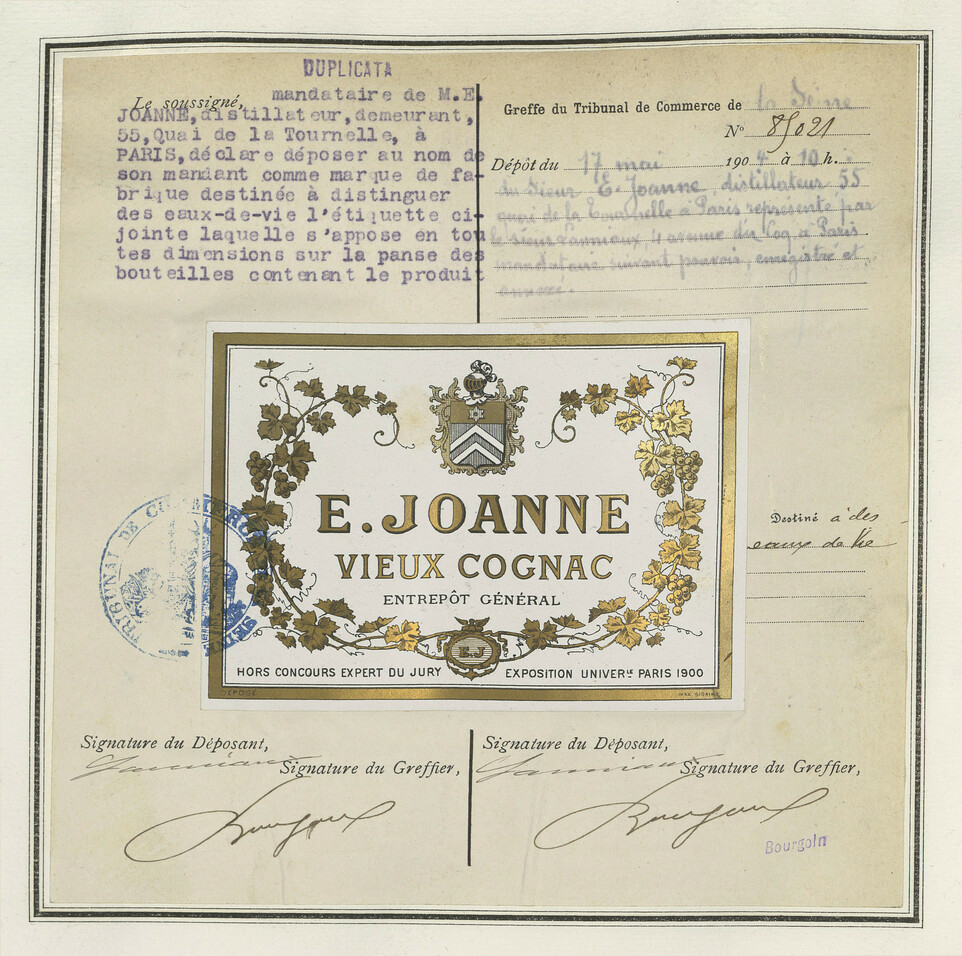 DUPLICATA
Le soussigné, mandataire de M.E.
JOANNE,distillateur,demeurant,
55,Quai de la Tournelle, à
PARIS,déclare déposer au nom de
son mandant comme marque de fa-
brique destinée à distinguer
des eaux-de-vie l'étiquette ci-
jointe laquelle s'appose en tou
tes dimensions sur la panse des
bouteilles contenant le produit
Greffe du Tribunal de Commerce de la Seine
N° 85021
Dépôt du 17 mai 1904 à 10 h.
du Sieur E. Joanne, distillateur 55
quai de la Tournelle à Paris représenté par
le sieur Lanniaux, 4 avenue du Coq à Paris
mandataire suivant pouvoir, enregistré et
annexé.
E. JOANNE
VIEUX COGNAC
ENTREPÔT GÉNÉRAL
E.J
HORS CONCOURS EXPERT DU JURY
EXPOSITION UNIVERLE PARIS 1900
DÉPOSÉ
TRIBUNAL DE COMMERCE
Destiné à des
eaux de Vie
Signature du Déposant,
Signature du Greffier,
Signature du Déposant,
Signature du Greffier,
Bourgoin